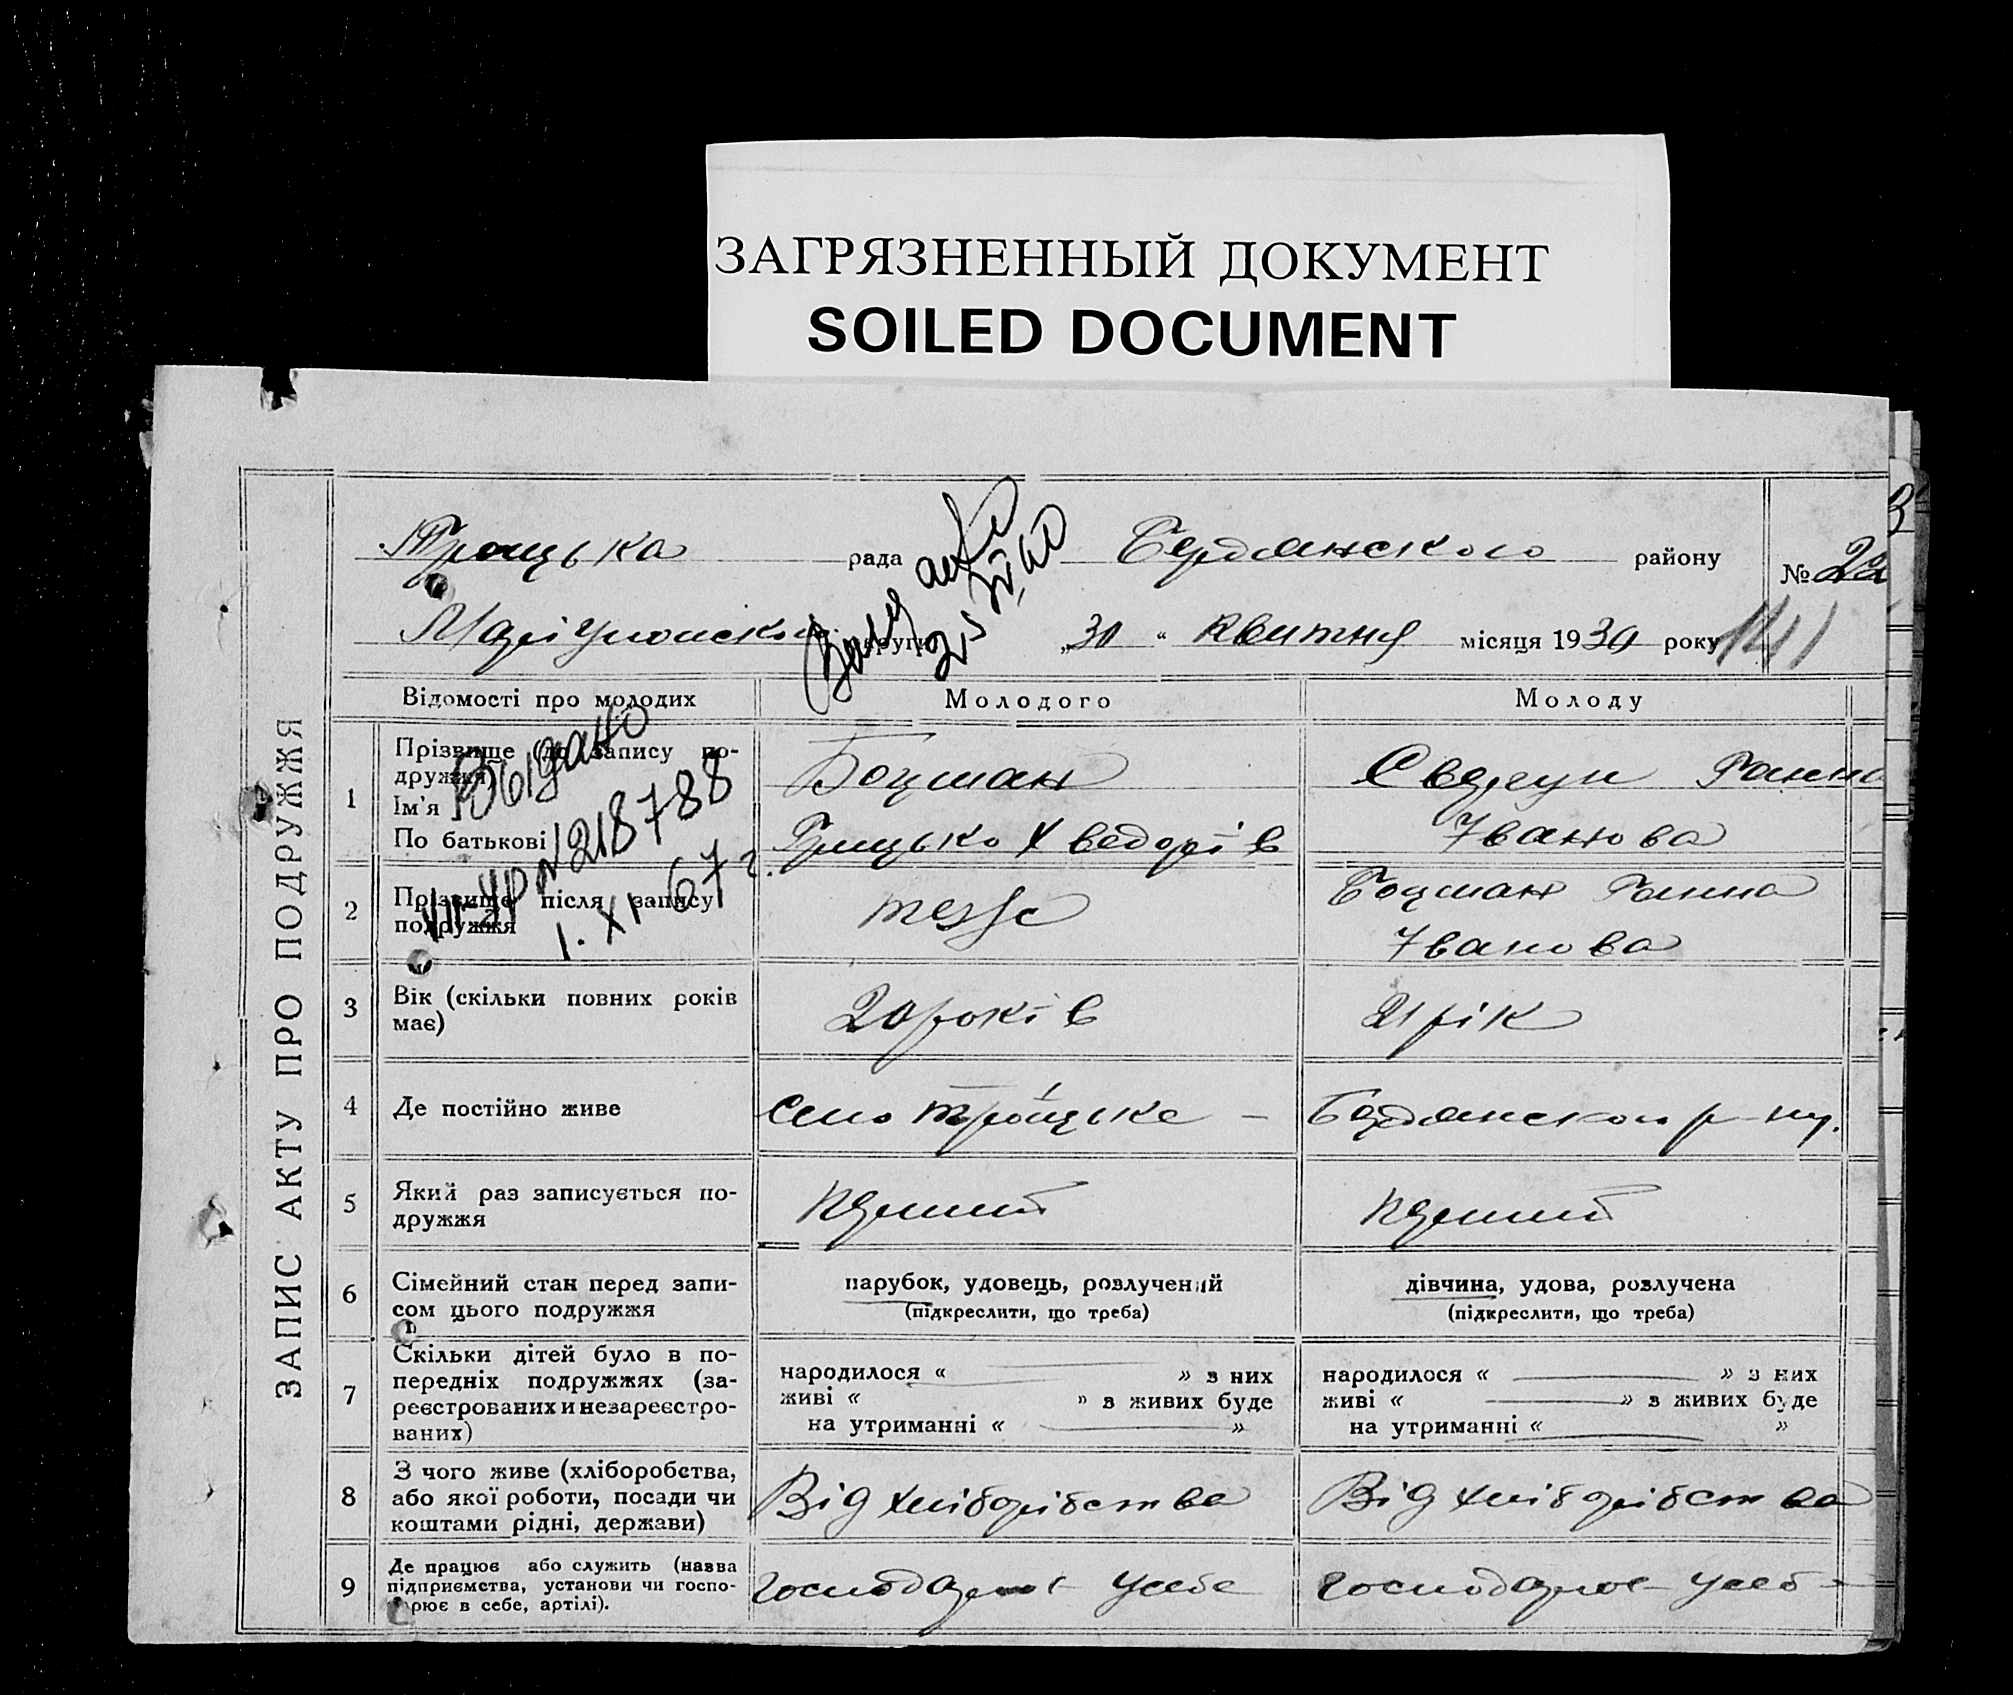 ЗАГРЯЗНЕННЫЙ ДОКУМЕНТ
SOILED DOCUMENT
ЗАПИС АКТУ ПРО ПОДРУЖЖЯ
Троцька рада Бердянского району
№ 22
Маріупольского округи „30 “ квитня місяця 1930 року
141
Видано
218788
1. XI 67 г.
Відомості про молодих Молодого Молоду
1
Прізвище (до запису по-
дружжя)
Ім'я
По батькові
Боцман
Грицько Хведорів
Ганна
Іванова
2
Прізвище після запису
подружжя
теж
Боцман Ганна
Іванова
3
Вік (скільки повних років
має)
20 років
21 рік
4
Де постійно живе
Село Троїцьке –
Бердянского р-ну.
5
Який раз записується по-
дружжя
перший
перший
6
Сімейний стан перед запи-
сом цього подружжя
парубок, удовець, розлучений
(підкреслити, що треба)
дівчина, удова, розлучена
(підкреслити, що треба)
7
Скільки дітей було в по-
передніх подружжях (за-
реєстрованих и незареєстро-
ваних)
народилося « » з них
живі « » з живих буде
на утриманні « »
народилося « » з них
живі « » з живих буде
на утриманні « »
8
З чого живе (хліборобства,
або якої роботи, посади чи
коштами рідні, держави)
Від хліборібства
Від хліборібства
9
Де працює або служить (назва
підприємства, установи чи госпо-
рює в себе, артілі).
господарює усебе
господарює усеб-